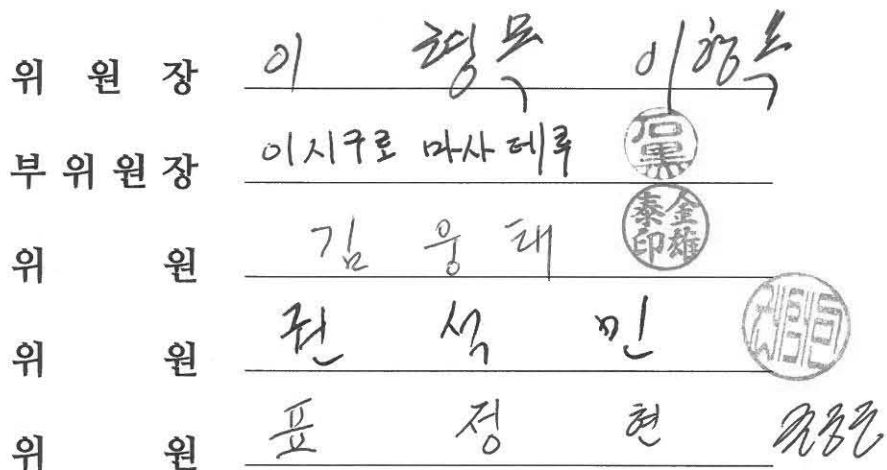 위 원 장 이 형목 이형목
부 위 원 장 이시구로 마사테루 石黒
위 원 김 웅 태 金雄泰印
위 원 권 석 민
위 원 표 정 현